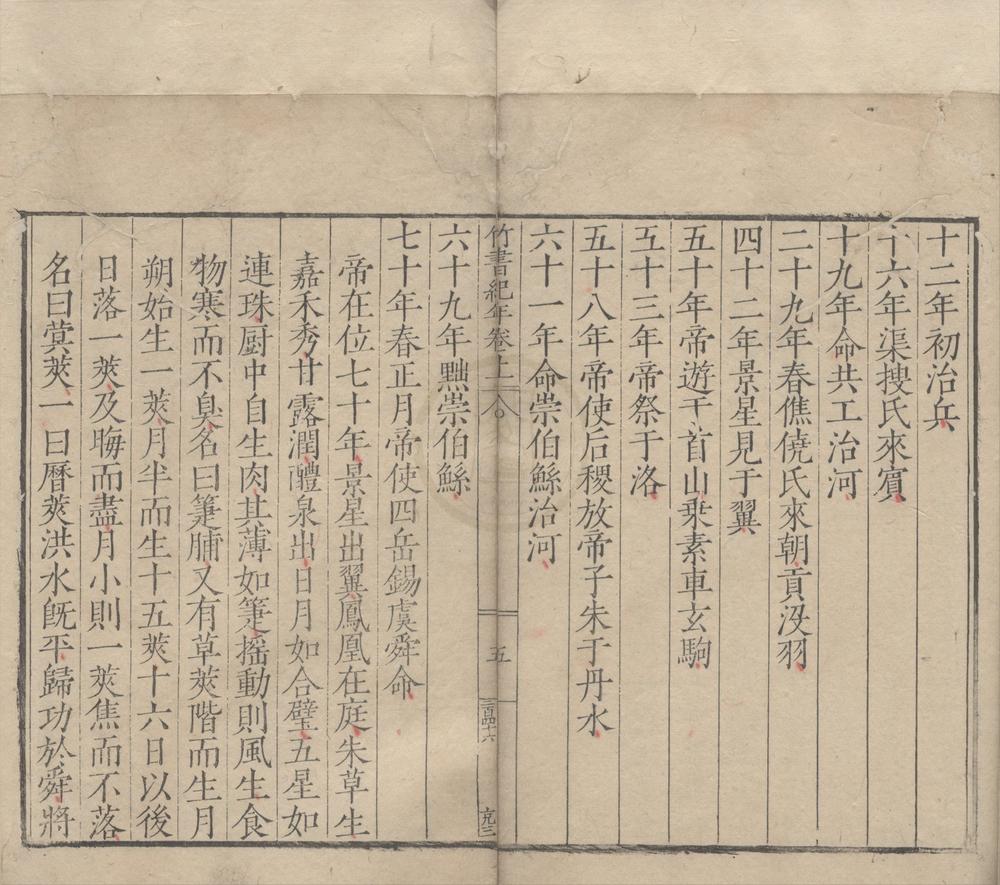 十二年初治兵
十六年渠搜氏來賓
十九年命共工治河
二十九年春僬僥氏來朝貢沒羽
四十二年景星見于翼
五十年帝遊于首山乗素車玄駒
五十三年帝祭于洛
五十八年帝使后稷放帝子朱于丹水
六十一年命崇伯鯀治河
竹書紀年卷上
五
三百四十六
克三
六十九年黜崇伯鯀
七十年春正月帝使四岳錫虞舜命
帝在位七十年景星出翼鳳凰在庭朱草生
嘉禾秀甘露潤醴泉出日月如合璧五星如
連珠厨中自生肉其薄如箑摇動則風生食
物寒而不臭名曰箑脯又有草莢階而生月
朔始生一莢月半而生十五莢十六日以後
日落一莢及晦而盡月小則一莢焦而不落
名曰蓂莢一曰曆莢洪水旣平歸功於舜將